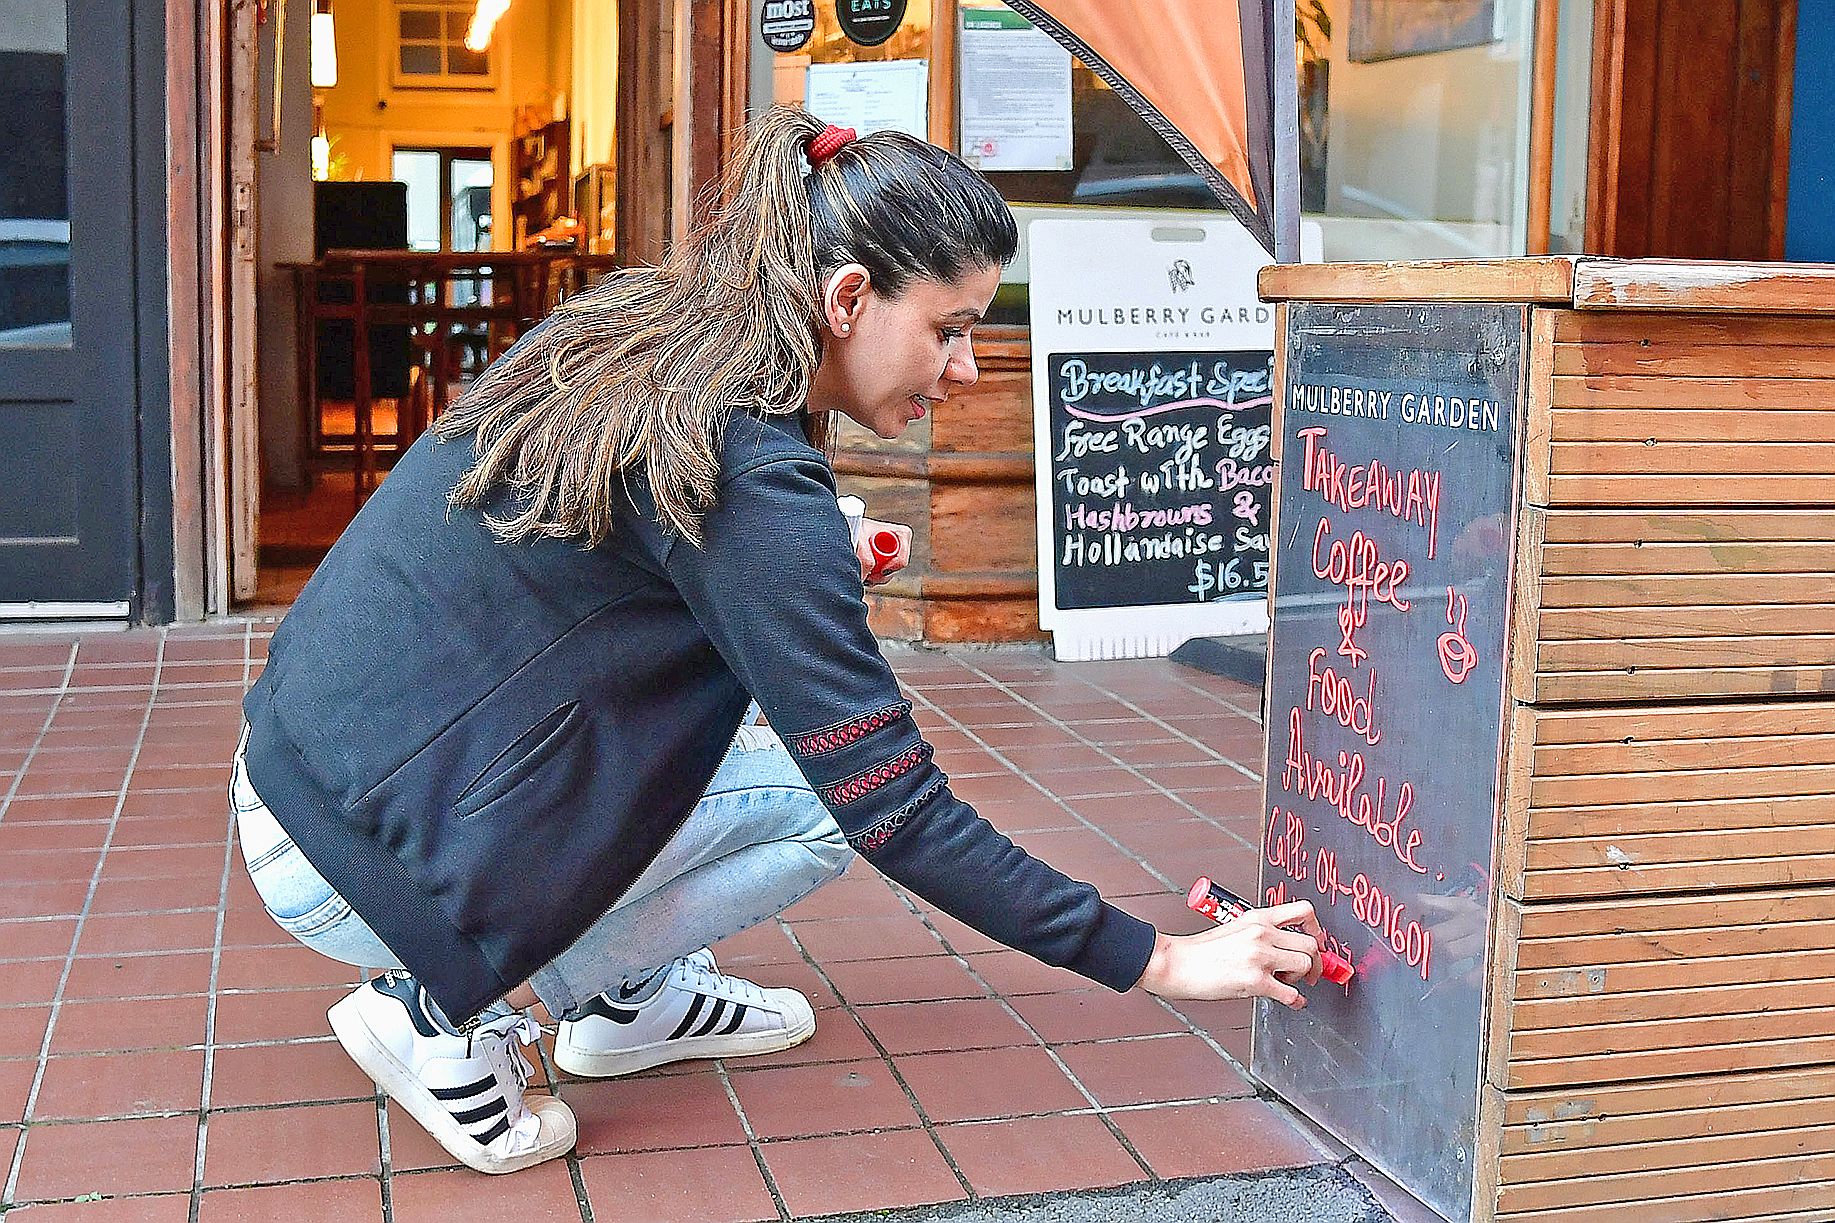 most
EATS
MULBERRY GARD
CAFE & BAR
Breakfast Speci
Free Range Eggs
Toast with Baco
Hashbrowns &
Hollandaise Sau
$16.5
MULBERRY GARDEN
TAKEAWAY
Coffee
&
Food
Available.
Call: 04-801601